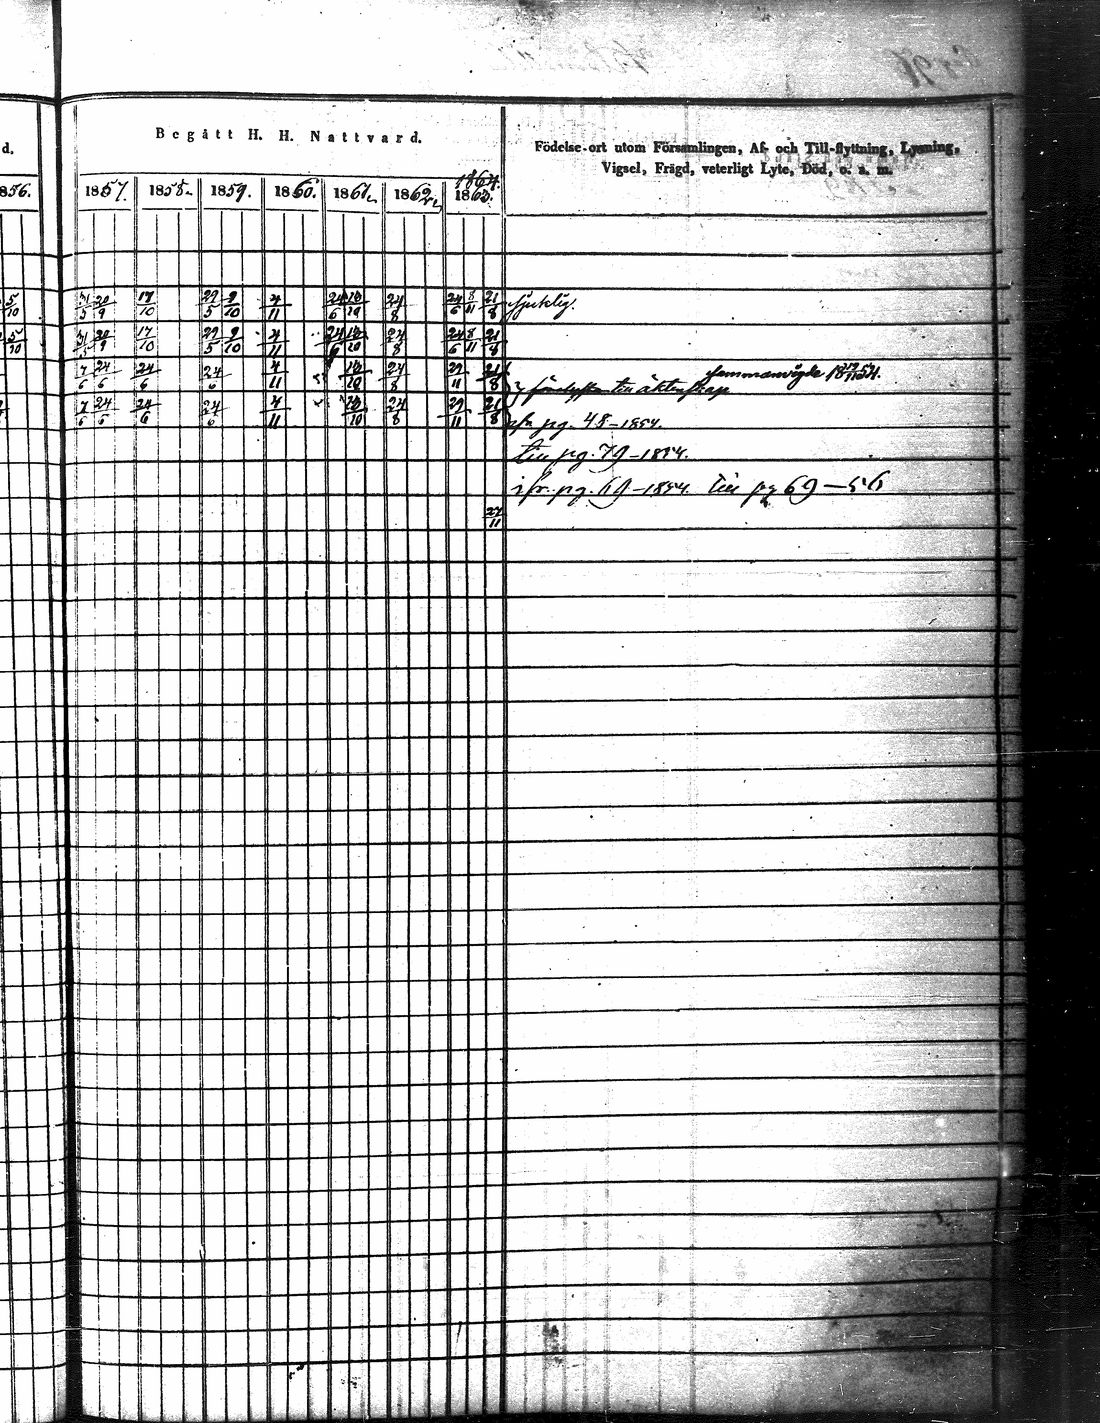 Begått H. H. Nattvard.
d.
Födelse-ort utom Församlingen, Af- och Till-flyttning, Lysning,
Vigsel, Frägd, veterligt Lyte, Död, o. s. m.
1864.
856. 1857. 1858. 1859. 1860. 1861. 1862. 1863.
5/10 31/5 20/9 17/10 29/5 9/10 4/11 24/6 24/8 24/6 8/11 21/8 sjuklig.
5/10 31/5 20/9 17/10 29/5 9/10 4/11 24/6 24/8 24/6 8/11 21/8
7/6 24/6 24/6 24/6 4/11 24/8 29/11 21/8 sammanvigde
till äktenskap
7/6 24/6 24/6 24/6 4/11 24/8 29/11 21/8 fr. pg. 48-1854.
till pg. 79-1854.
fr. pg. 69-1854. till pg 69-56
27/11